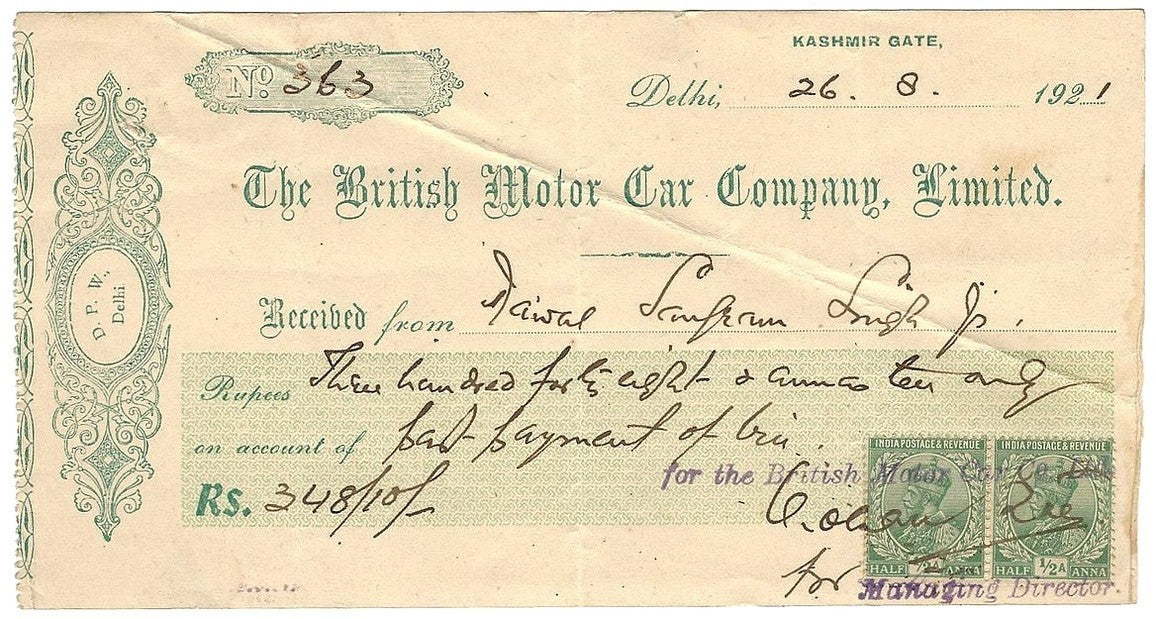 KASHMIR GATE,
No. 363
Delhi, 26. 8. 1921
The British Motor Car Company, Limited.
D. P. W., Delhi
Received from Singh Ji.
Rupees Three hundred forty eight & annas ten only
on account of part payment of
Rs. 348/10/-
INDIA POSTAGE & REVENUE INDIA POSTAGE & REVENUE
for the British Motor Car Co
HALF ½A ANNA HALF ½A ANNA
for Managing Director.